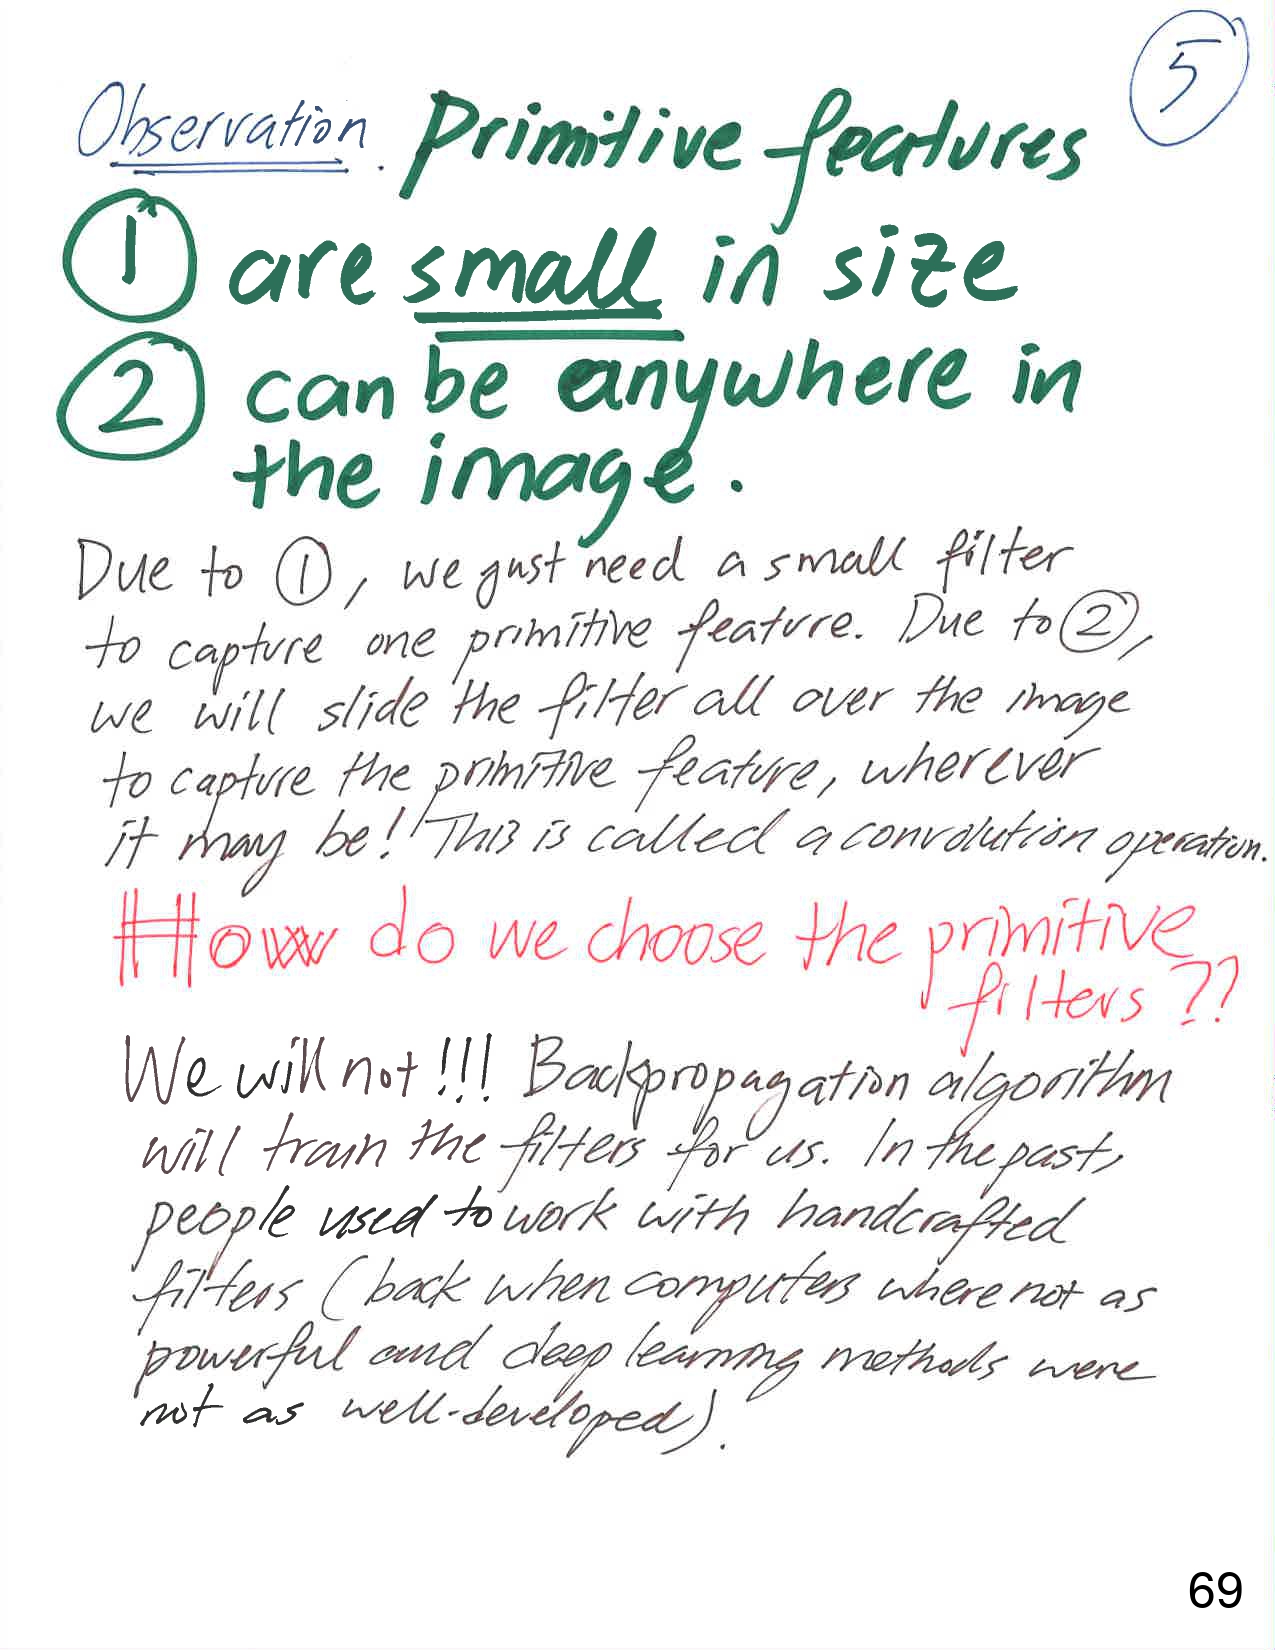 5
Observation. Primitive features
① are small in size
② can be anywhere in
the image.
Due to ①, we just need a small filter
to capture one primitive feature. Due to ②,
we will slide the filter all over the image
to capture the primitive feature, wherever
it may be! This is called a convolution operation.
How do we choose the primitive
filters ??
We will not!!! Backpropagation algorithm
will train the filters for us. In the past,
people used to work with handcrafted
filters (back when computers where not as
powerful and deep learning methods were
not as well-developed).
69